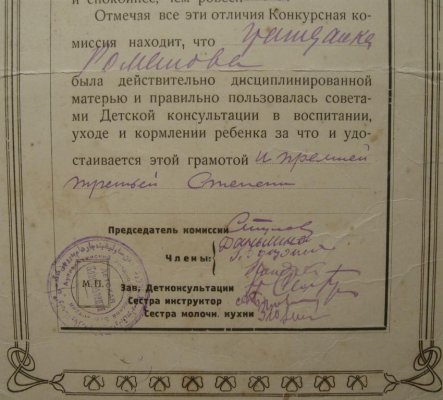 и спокойнее, чем
Отмечая все эти отличия Конкурсная ко-
миссия находит, что гражданка
была действительно дисциплинированной
матерью и правильно пользовалась совета-
ми Детской консультации в воспитании,
уходе и кормлении ребенка за что и удо-
стаивается этой грамотой и премией
третьей степени
Председатель комиссии
Члены:
М.П.
Зав. Детконсультации
Сестра инструктор
Сестра молочн. кухни